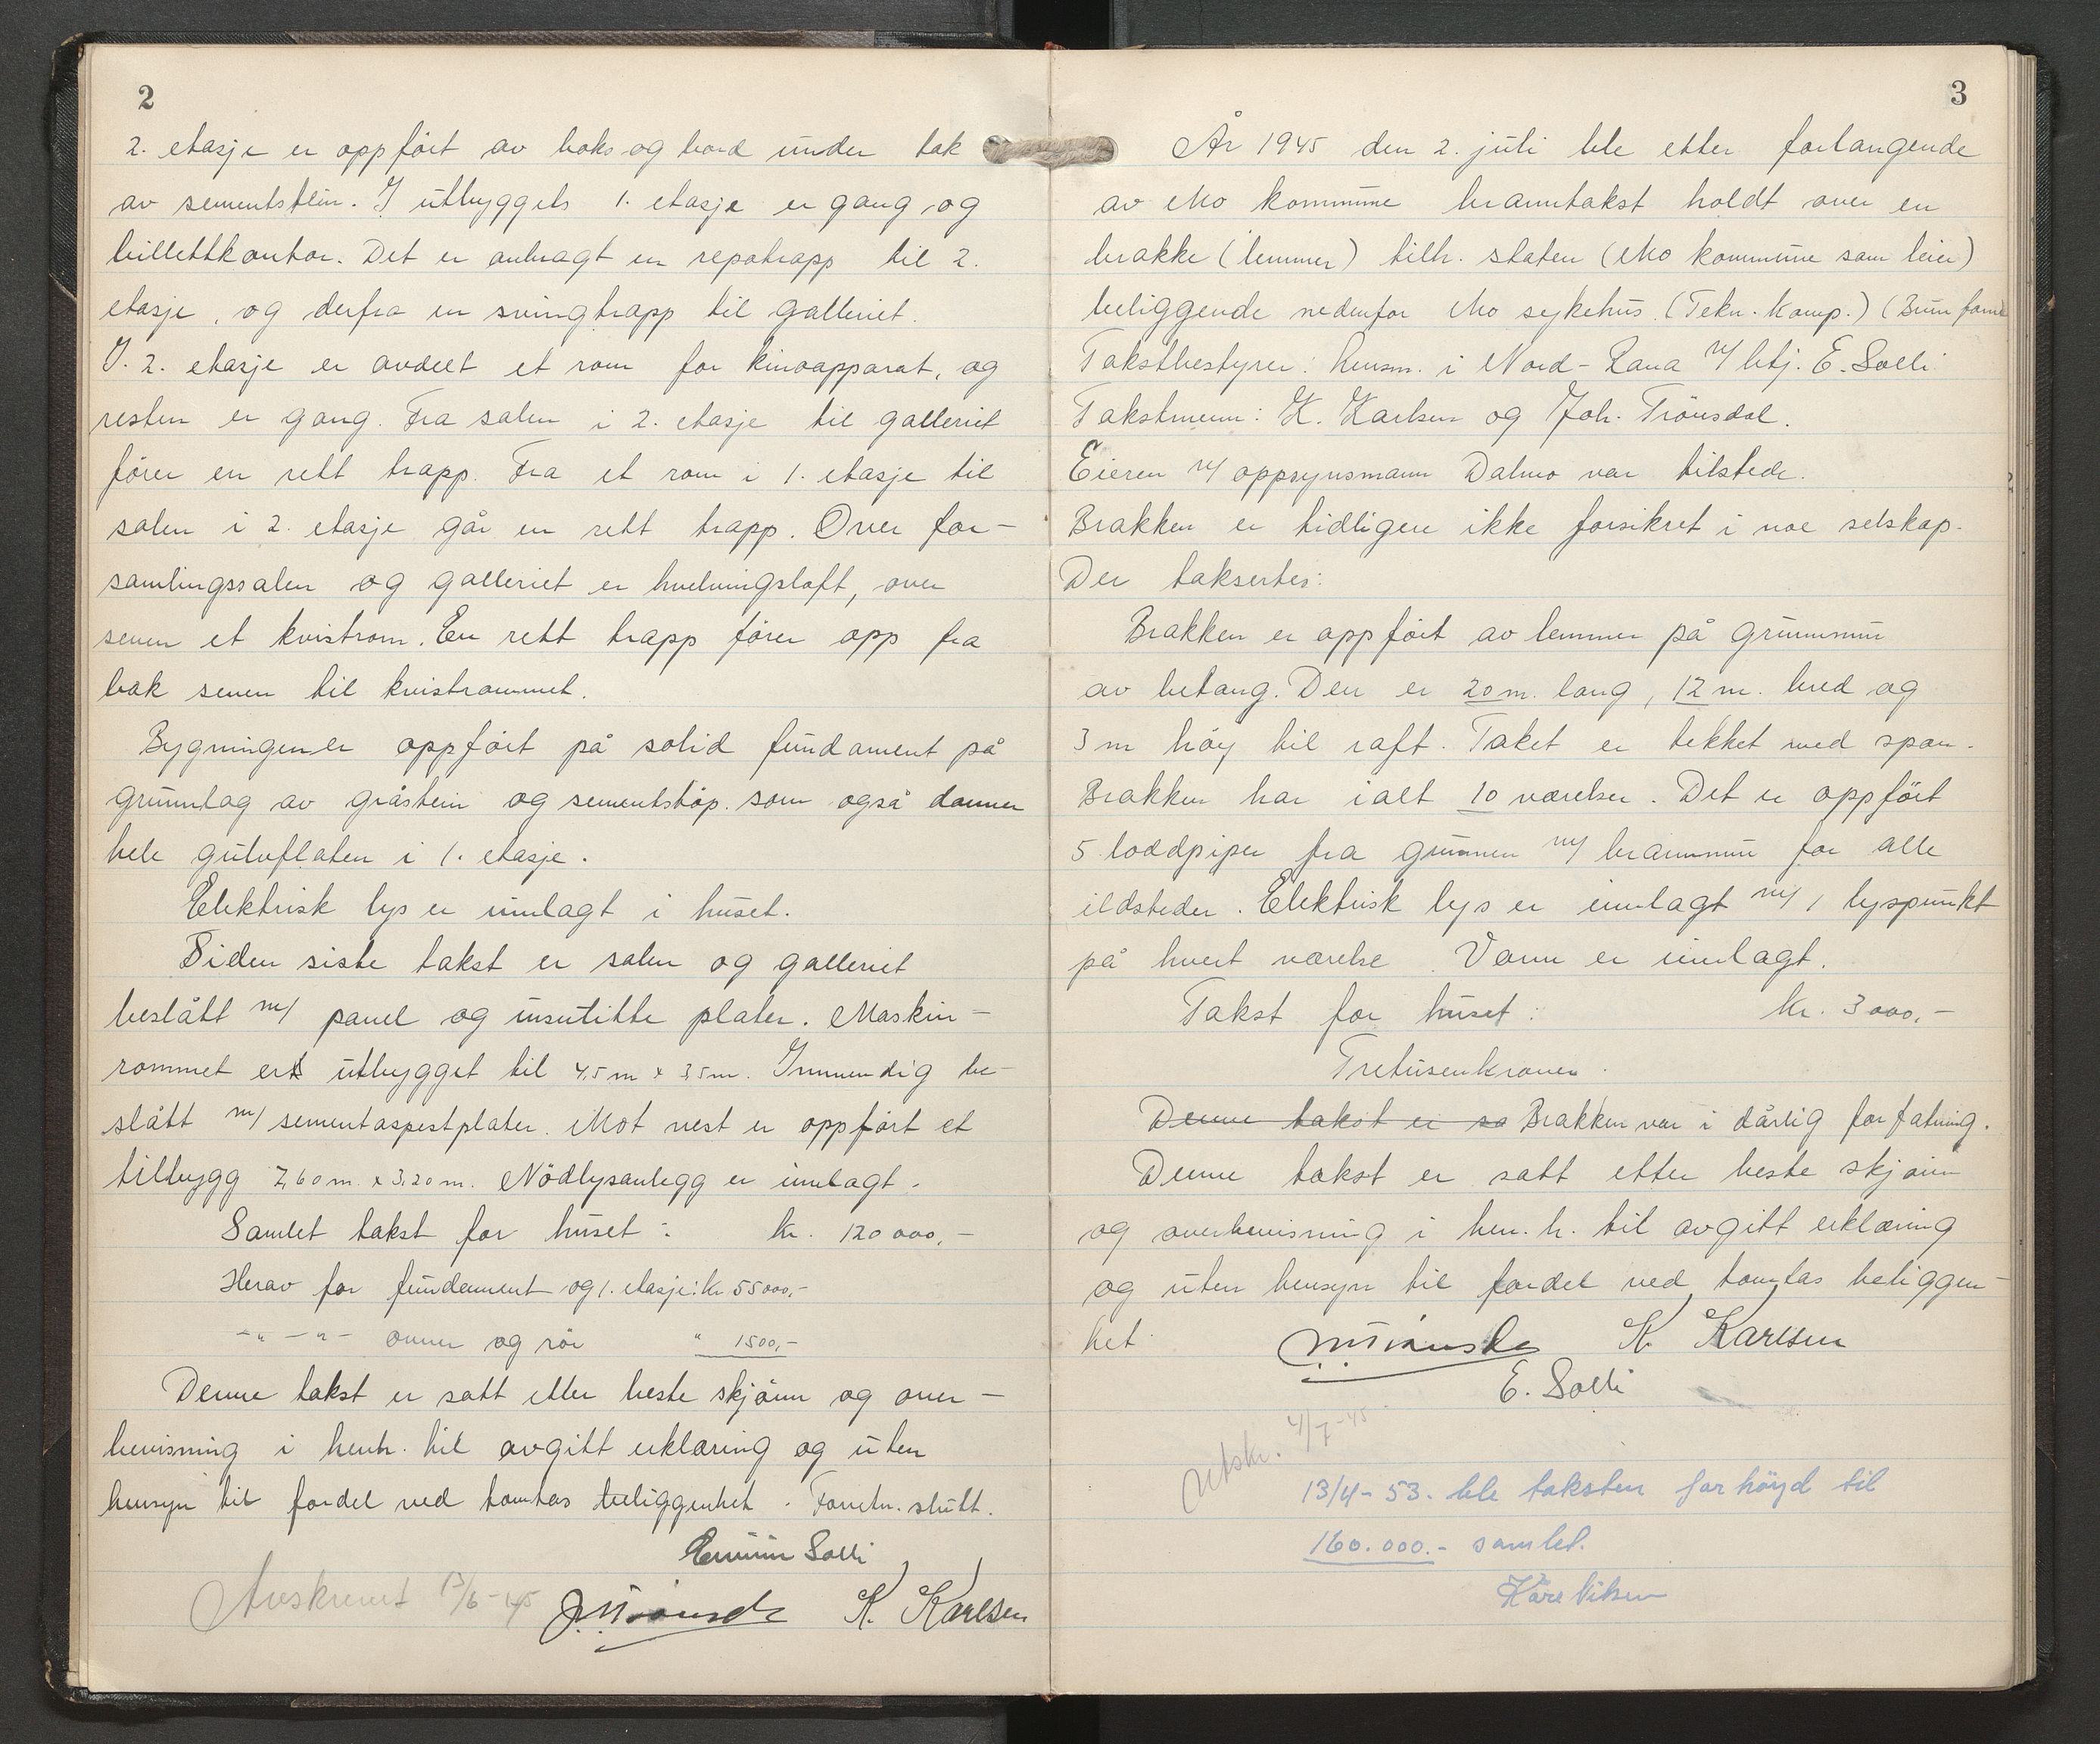 2
2. etasje er oppført av boks og bord under tak
av sementstein. I utbyggets 1. etasje er gang og
billettkontor. Det er anbragt en repotrapp til 2.
etasje, og derfra en svingtrapp til galleriet.
I. 2. etasje er avdelt et rom for kinoapparat, og
resten er gang. Fra salen i 2. etasje til galleriet
fører en rett trapp. Fra et rom i 1. etasje til
salen i 2. etasje går en rett trapp. Over for-
samlingssalen og galleriet er hvelvingsloft, over
senen et kvistrom. En rett trapp fører opp fra
bak senen til kvistrommet.
Bygningen er oppført på solid fundament på
grunnlag av gråstein og sementstøp. som også danner
hele gulvflaten i 1. etasje.
Elektrisk lys er innlagt i huset.
Siden siste takst er salen og galleriet
beslått m/ panel og insulitte plater. Maskin-
rommet er utbygget til 4,5 m x 3,5 m. Innvendig be-
slått m/ sementaspestplater. Mot vest er oppført et
tilbygg 7,60 m. x 3,20 m. Nødlysanlegg er innlagt.
Samlet takst for huset: kr. 120 000,-
Herav for fundament og 1. etasje: kr 55 000,-
-"- -"- ovner og rør " 1500,-
Denne takst er satt etter beste skjønn og over-
bevisning i henh. til avgitt erklæring og uten
hensyn til fordel ved tomtas beliggenhet. Forretn. slutt.
Solli
Avskrevet 13/6-45 K. Karlsen
3
År 1945 den 2. juli ble etter forlangende
av Mo kommune branntakst holdt over en
brakke (lemmer) tilh. staten (Mo kommune som leier)
beliggende nedenfor Mo sykehus. (Tekn. Komp.)
Takstbestyrer: lensm. i Nord-Rana v/ btj. E. Solli
Takstmenn: K. Karlsen og Joh. Trønsdal.
Eieren v/ oppsynsmann Dalmo var tilstede.
Brakken er tidligere ikke forsikret i noe selskap.
Der taksertes:
Brakken er oppført av lemmer på grunnmur
av betong. Den er 20 m. lang, 12 m. bred og
3 m høy til raft. Taket er tekket med spon.
Brakken har ialt 10 værelser. Det er oppført
5 loddpiper fra grunnen m/ brannmur for alle
ildsteder. Elektrisk lys er innlagt m/ 1 lyspunkt
på hvert værelse. Vann er innlagt.
Takst for huset: kr. 3 000,-
Tretusenkroner.
Denne takst er so Brakken var i dårlig forfatning.
Denne takst er satt etter beste skjønn
og overbevisning i hen.h. til avgitt erklæring
og uten hensyn til fordel ved tomtas beliggen-
het. K. Karlsen
E. Solli
Utskr. 4/7-45
13/4-53. ble taksten forhøyd til
160.000.- samlet.
Kåre